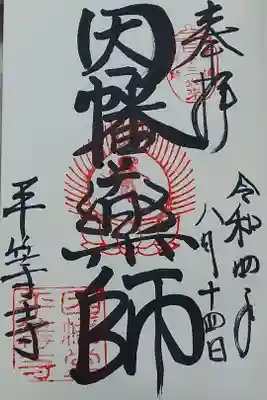 奉拝
令和四年
八月十四日
因幡薬師
平等寺